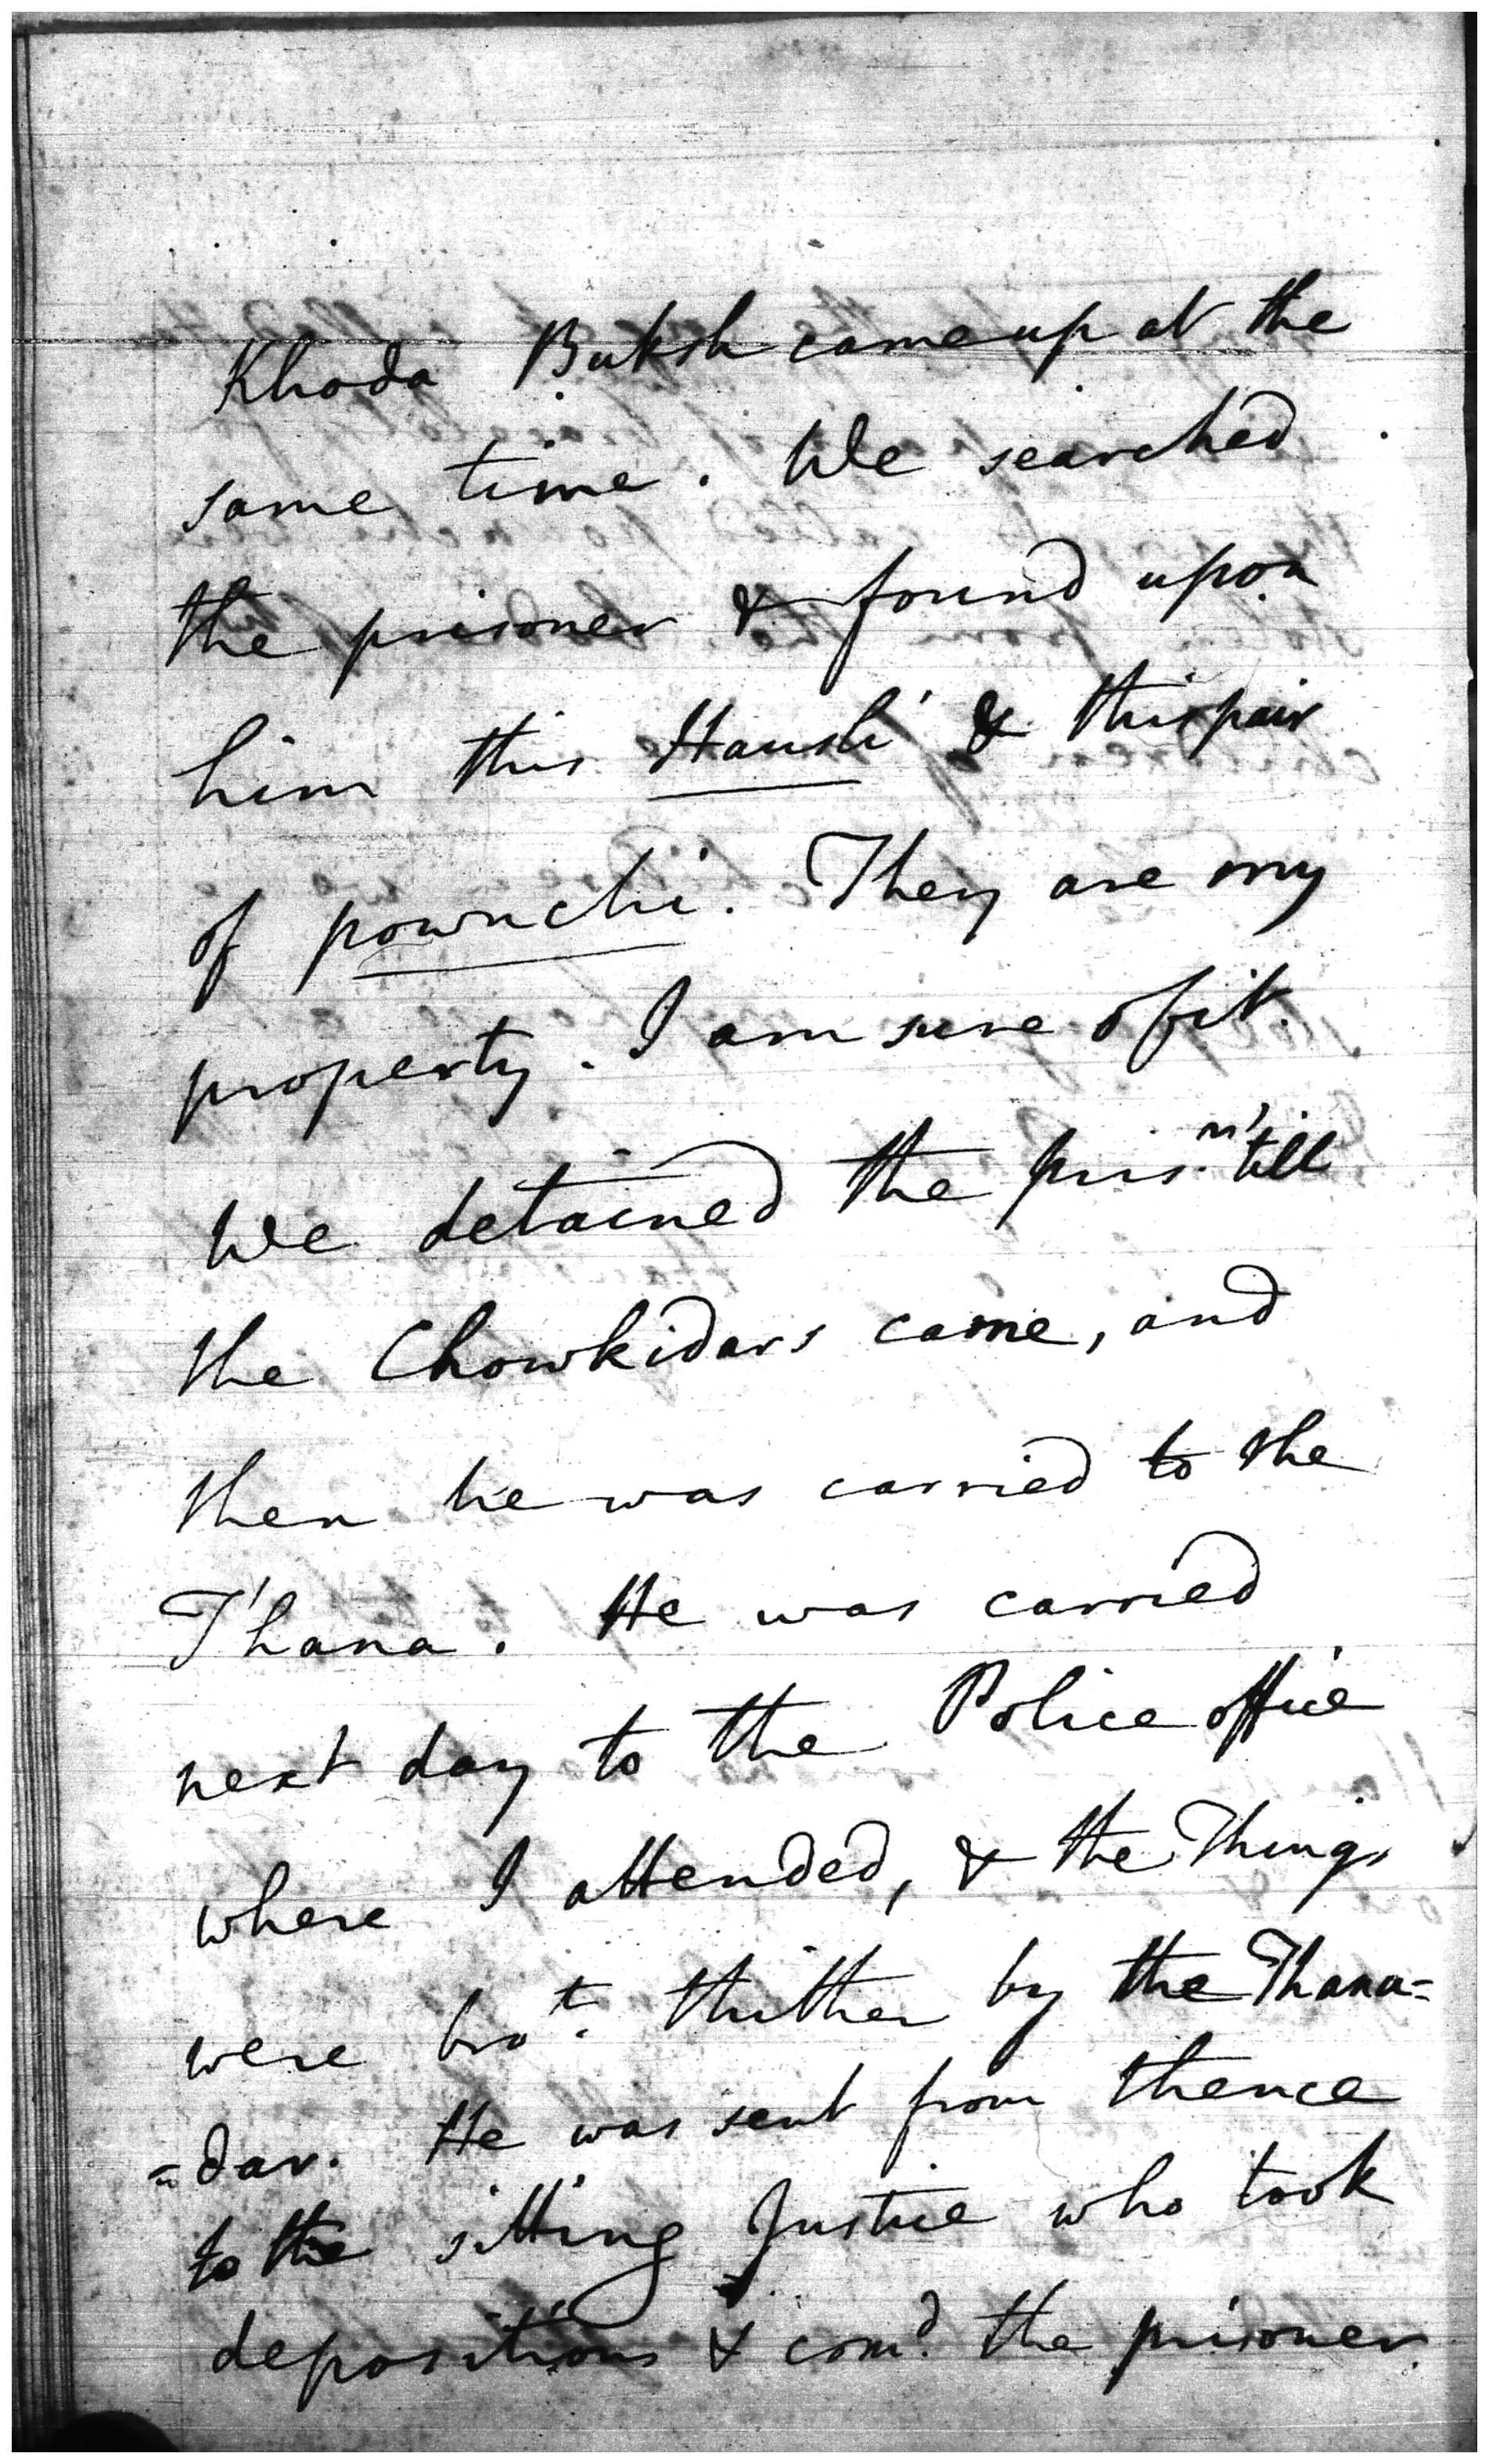 Khoda Buksh came up at the
same time. We searched
the prisoner & found upon
him this Hansli & this pair
of pownchi. They are my
property. I am sure of it.
We detained the pris.nr till
the Chowkidars came, and
then he was carried to the
T'hana. He was carried
next day to the Police office
where I attended, & the Things
were bro.t thither by the Thana=
=dar. He was sent from thence
to the sitting Justice who took
depositions & com.d the prisoner.